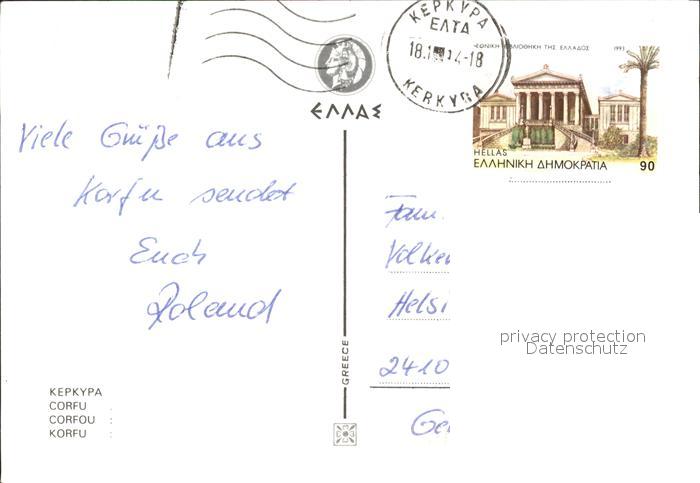 ΚΕΡΚΥΡΑ
ΕΛΤΑ
18.1 4-18
KERKYRA
ΕΘΝΙΚΗ ΒΙΒΛΙΟΘΗΚΗ ΤΗΣ ΕΛΛΑΔΟΣ 1993
HELLAS
ΕΛΛΗΝΙΚΗ ΔΗΜΟΚΡΑΤΙΑ 90
ΕΛΛΑΣ
Viele Grüße aus
Korfu sendet
Euch
Roland
Fam.
Volker
Helsi
2410
Ge
privacy protection
Datenschutz
GREECE
ΚΕΡΚΥΡΑ
CORFU :
CORFOU :
KORFU :